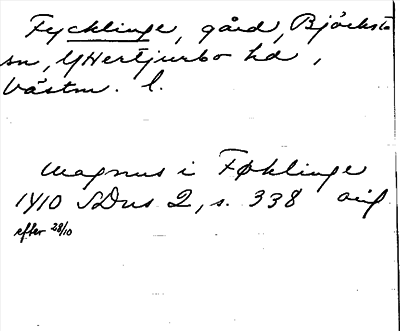 Fycklinge, gård, Björksta
sn, YHertjurbo hd,
Västm. l.
Magnus i Føklinge
1410 SDns 2, s. 338 avif
efter 28/10